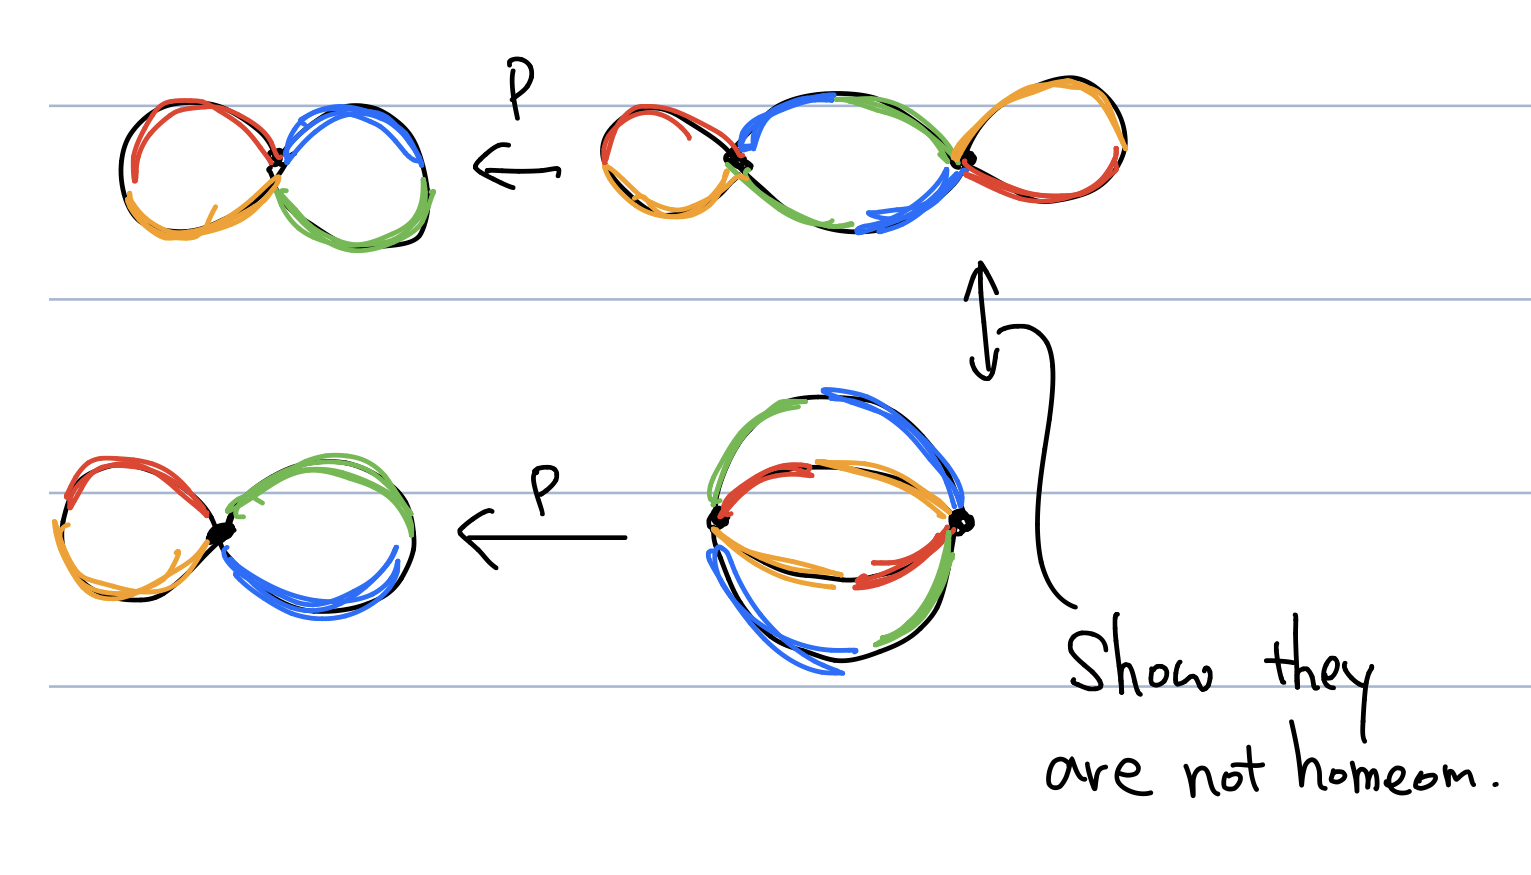 P
P
Show they
are not homeom.